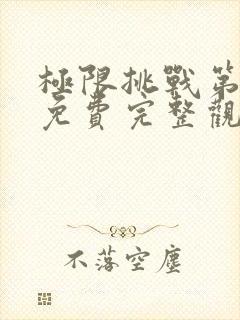 極限挑戰第
免費完整觀
不落空塵